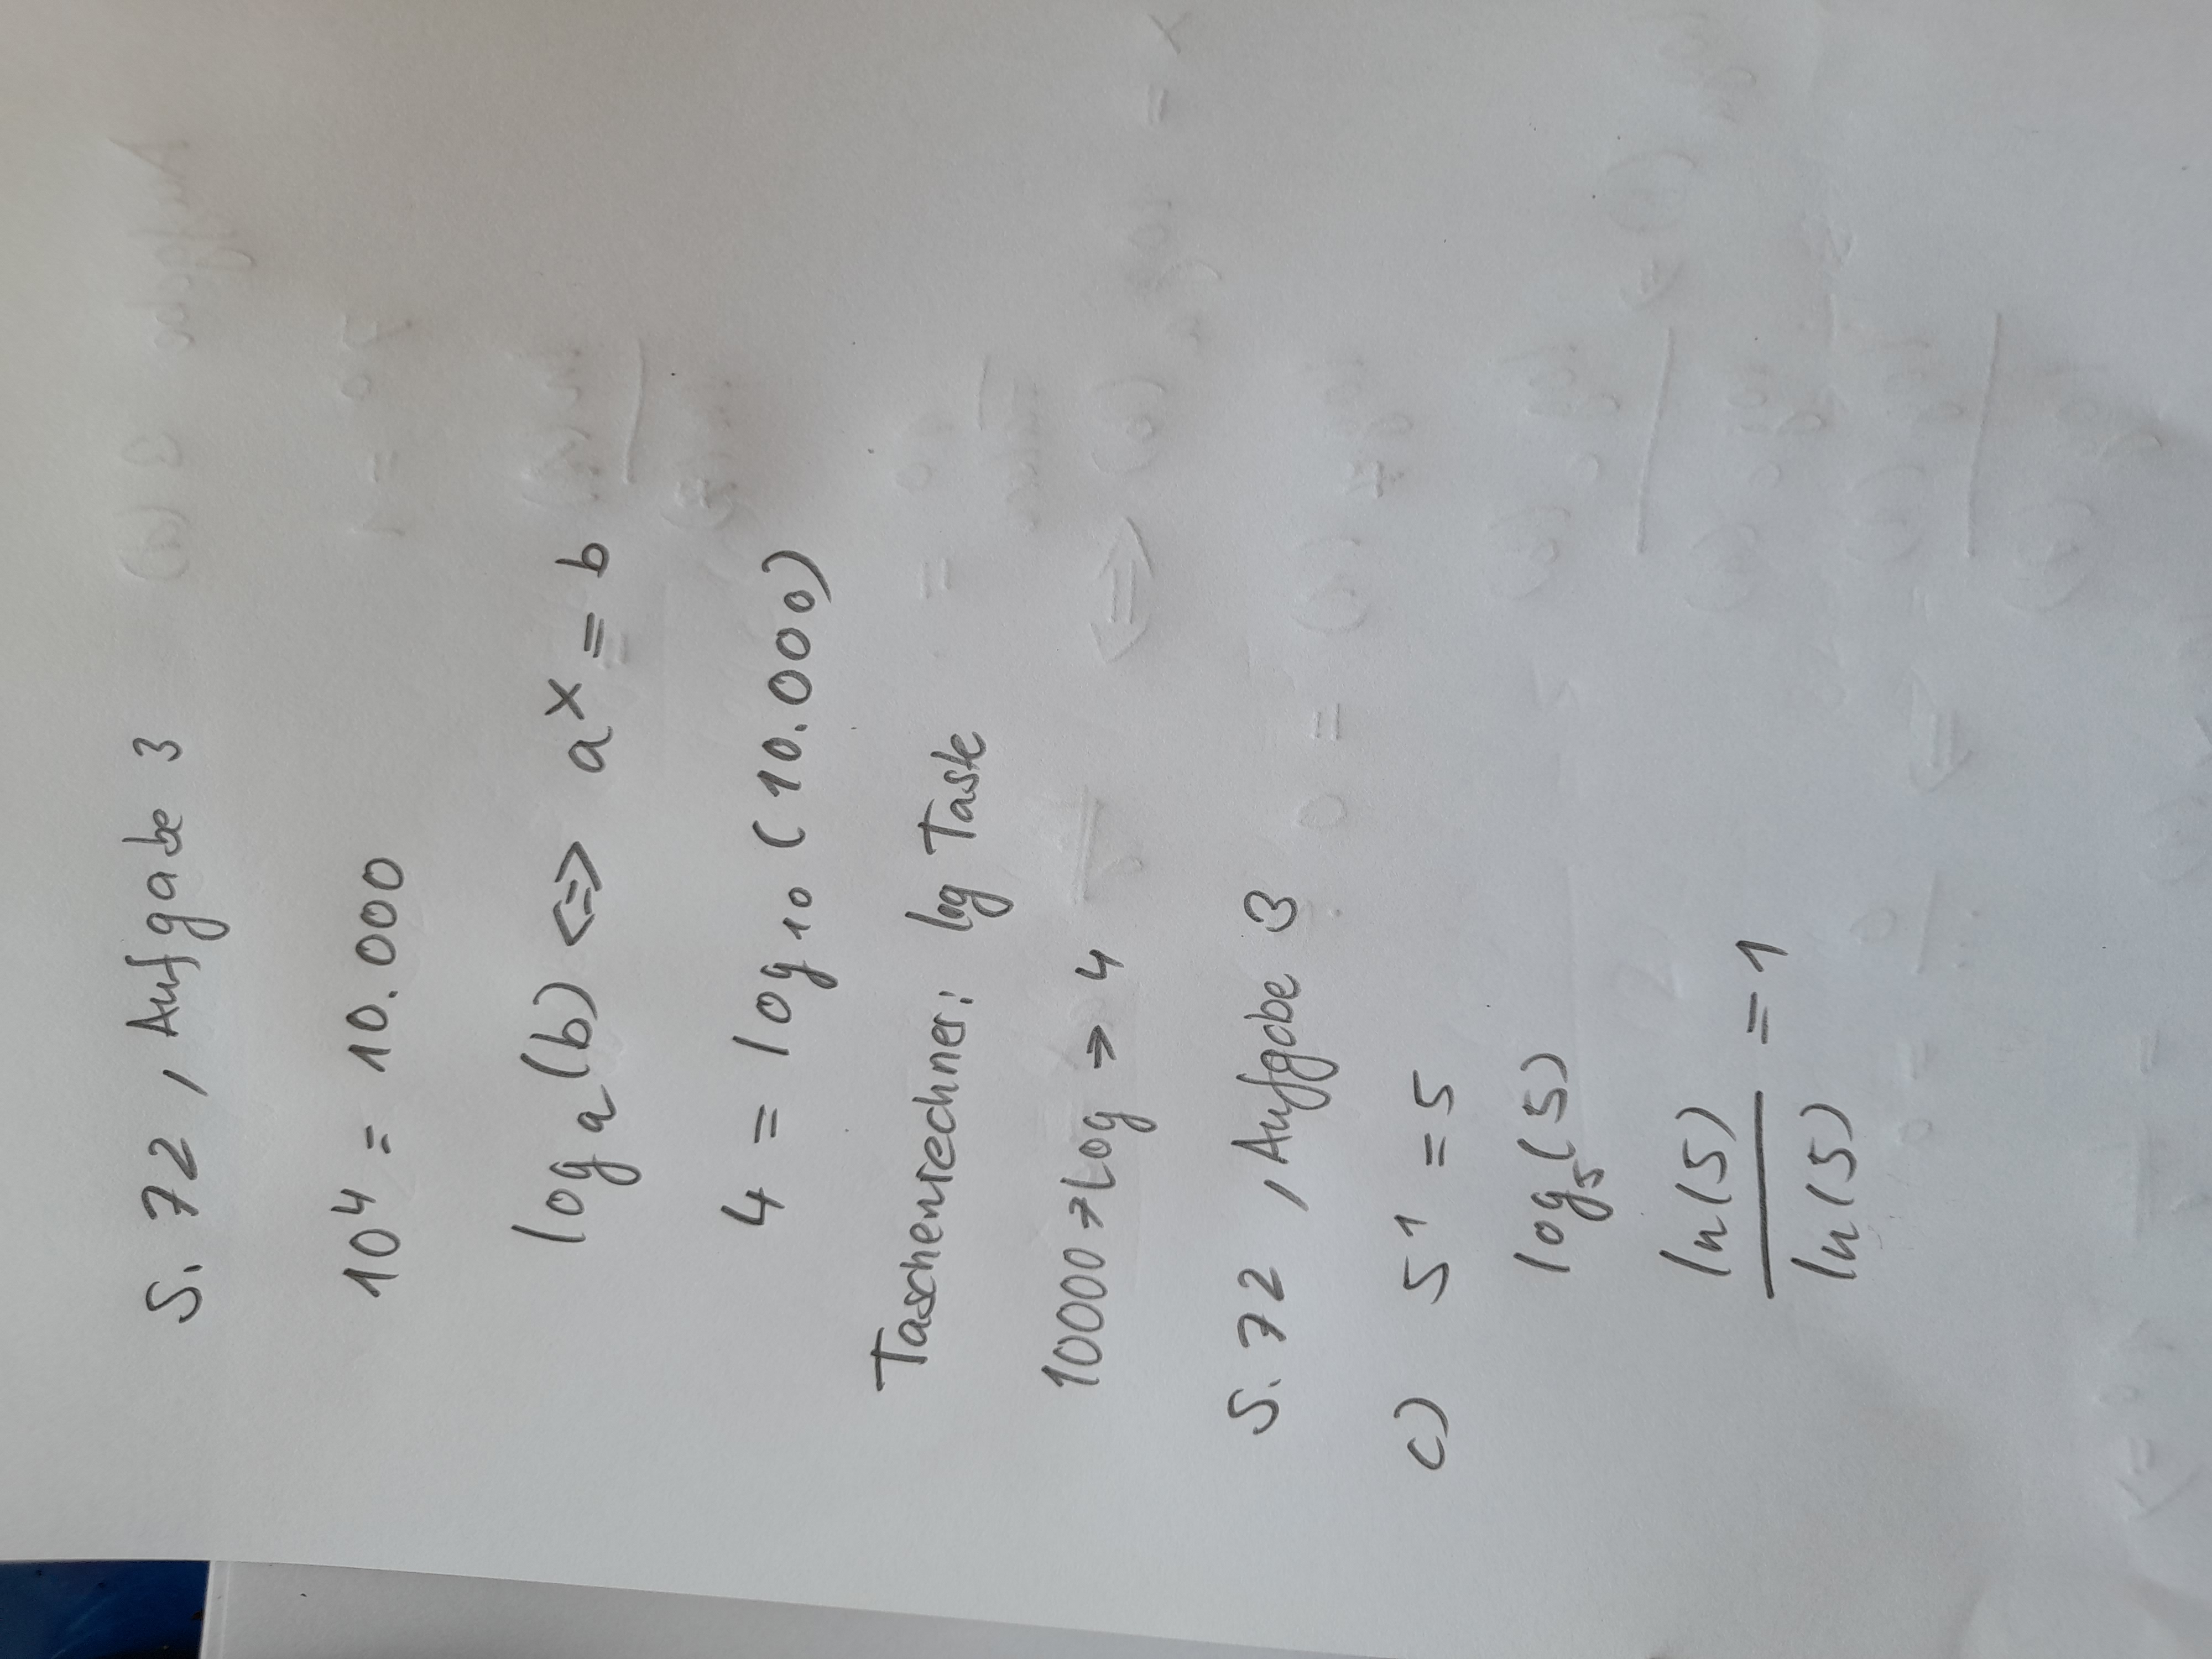 S. 72, Aufgabe 3
10⁴ = 10.000
logₐ(b) <=> aˣ = b
4 = log₁₀(10.000)
Taschenrechner: log Taste
10000 → Log → 4
S. 72, Aufgabe 3
c) 5¹ = 5
log₅(5)
ln(5)
—— = 1
ln(5)